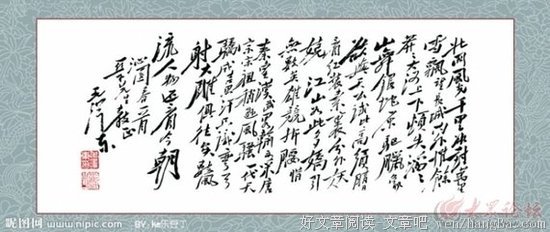 北国风光千里冰封万里
雪飘望长城内外惟余
莽莽大河上下顿失滔滔
山舞银蛇原驰腊象
欲与天公试比高须晴日
看红装素裹分外妖
娆 江山如此多娇引
无数英雄竞折腰惜
秦皇汉武略输文采唐
宗宋祖稍逊风骚一代天
骄成吉思汗只识弯弓
射大雕俱往矣数风
流人物还看今朝
沁园春一首
教正
毛泽东
昵图网 www.nipic.com BY: ke乐豆丁
好文章阅读 文章吧 wenzhangba.com